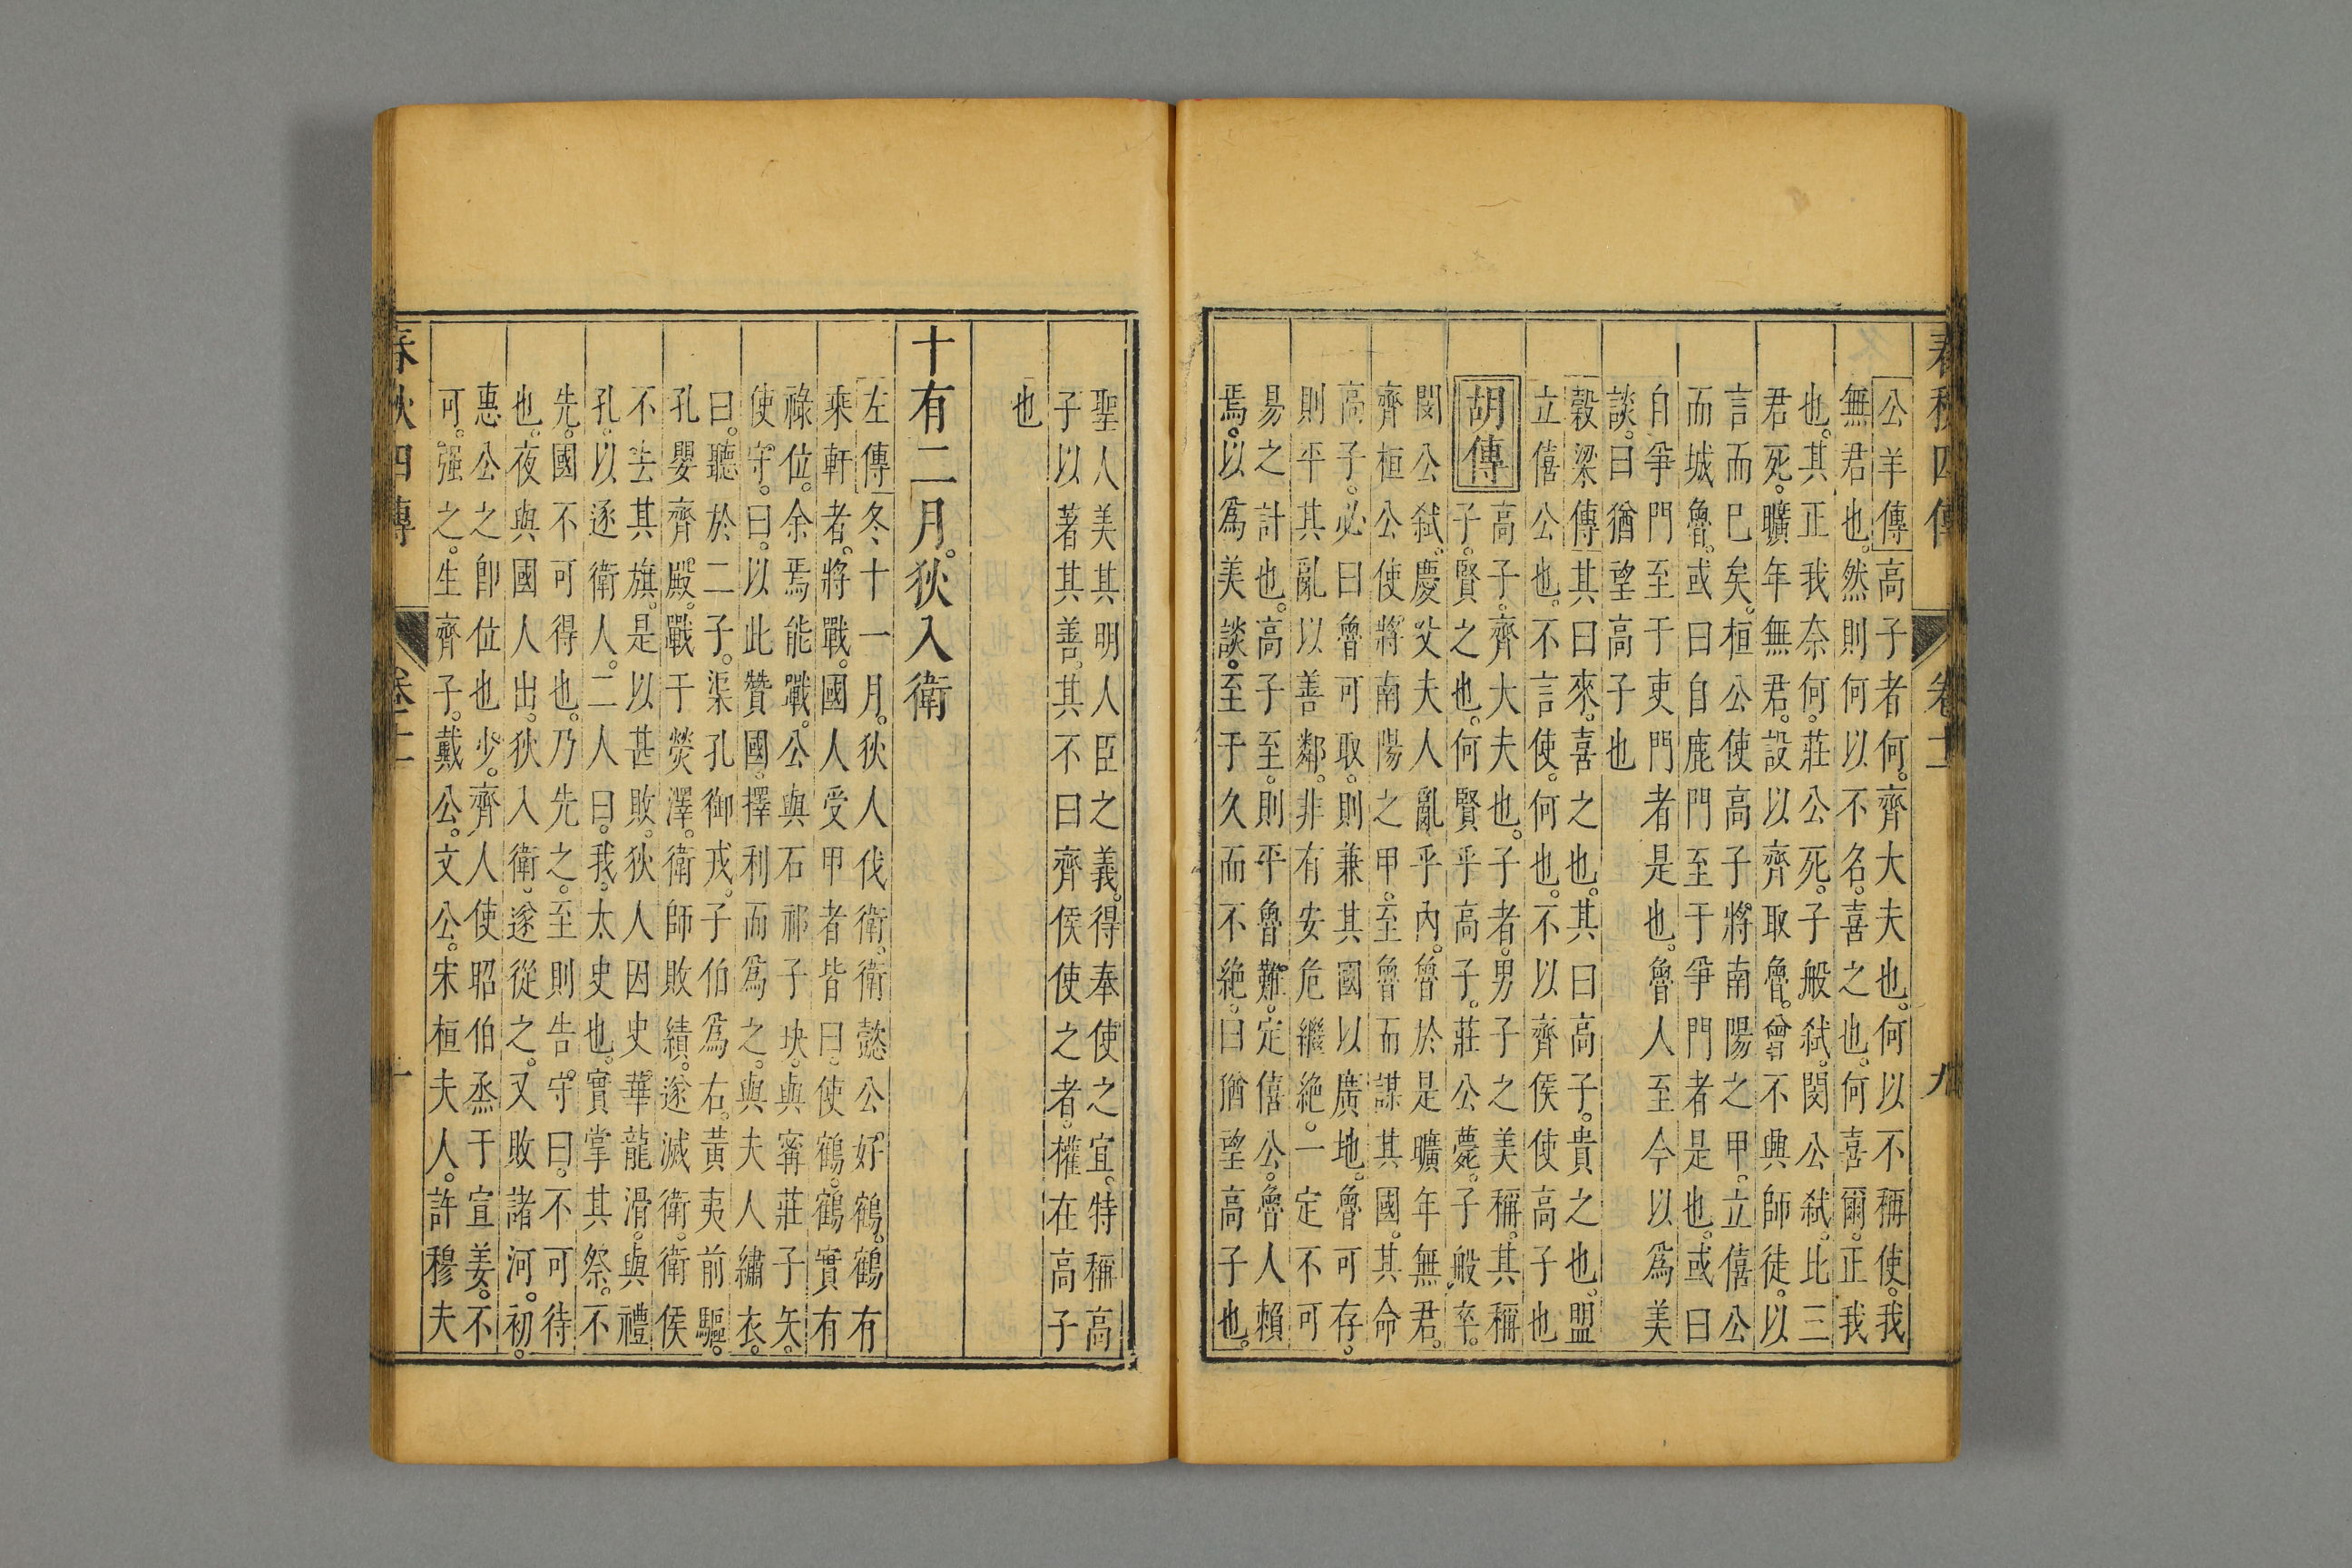 春秋四傳 卷 九
公羊傳高子者何。齊大夫也。何以不稱使。我
無君也。然則何以不名。喜之也。何喜爾。正我
也。其正我奈何。莊公死。子般弑。閔公弑。比三
君死。曠年無君。設以齊取魯。曾不興師徒。以
言而已矣。桓公使高子。將南陽之甲。立僖公
而城魯。或曰自鹿門至于爭門者是也。或曰
自爭門至于吏門者是也。魯人至今以爲美
談。曰猶望高子也
穀梁傳其曰來。喜之也。其曰高子。貴之也。盟
立僖公也。不言使。何也。不以齊侯使高子也
胡傳
高子。齊大夫也。子者。男子之美稱。其稱
子。賢之也。何賢乎高子。莊公薨。子般卒。
閔公弑。慶父夫人亂乎內。魯於是曠年無君。
齊桓公使將南陽之甲。至魯而謀其國。其命
高子。必曰魯可取。則兼其國以廣地。魯可存。
則平其亂以善鄰。非有安危繼絶。一定不可
易之計也。高子至。則平魯難。定僖公。魯人賴
焉。以爲美談。至于久而不絶。曰猶望高子也。
聖人美其明人臣之義。得奉使之宜。特稱高
子以著其善。其不曰齊侯使之者。權在高子
也
十有二月。狄入衛
左傳冬十二月。狄人伐衛。衛懿公好鶴。鶴有
乘軒者。將戰。國人受甲者皆曰。使鶴。鶴實有
祿位。余焉能戰。公與石祁子玦。與甯莊子矢。
使守。曰。以此贊國。擇利而爲之。與夫人繡衣。
曰。聽於二子。渠孔御戎。子伯爲右。黃夷前驅。
孔嬰齊殿。戰于熒澤。衛師敗績。遂滅衛。衛侯
不去其旗。是以甚敗。狄人因史華龍滑。與禮
孔。以逐衛人。二人曰。我太史也。實掌其祭。不
先。國不可得也。乃先之。至則告守。曰。不可待
也。夜與國人出。狄入衛。遂從之。又敗諸河。初。
惠公之卽位也少。齊人使昭伯烝于宣姜。不
可。强之。生齊子。戴公。文公。宋桓夫人。許穆夫
春秋四傳 卷